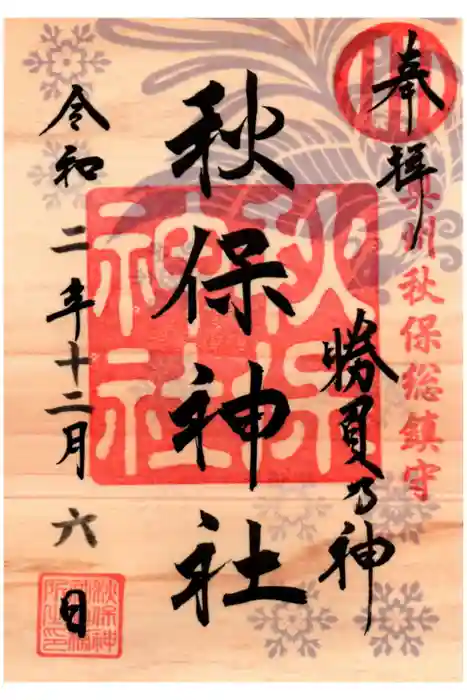 奉拝
奥州秋保総鎮守
勝負乃神
秋保神社
秋保神社
令和二年十二月六日